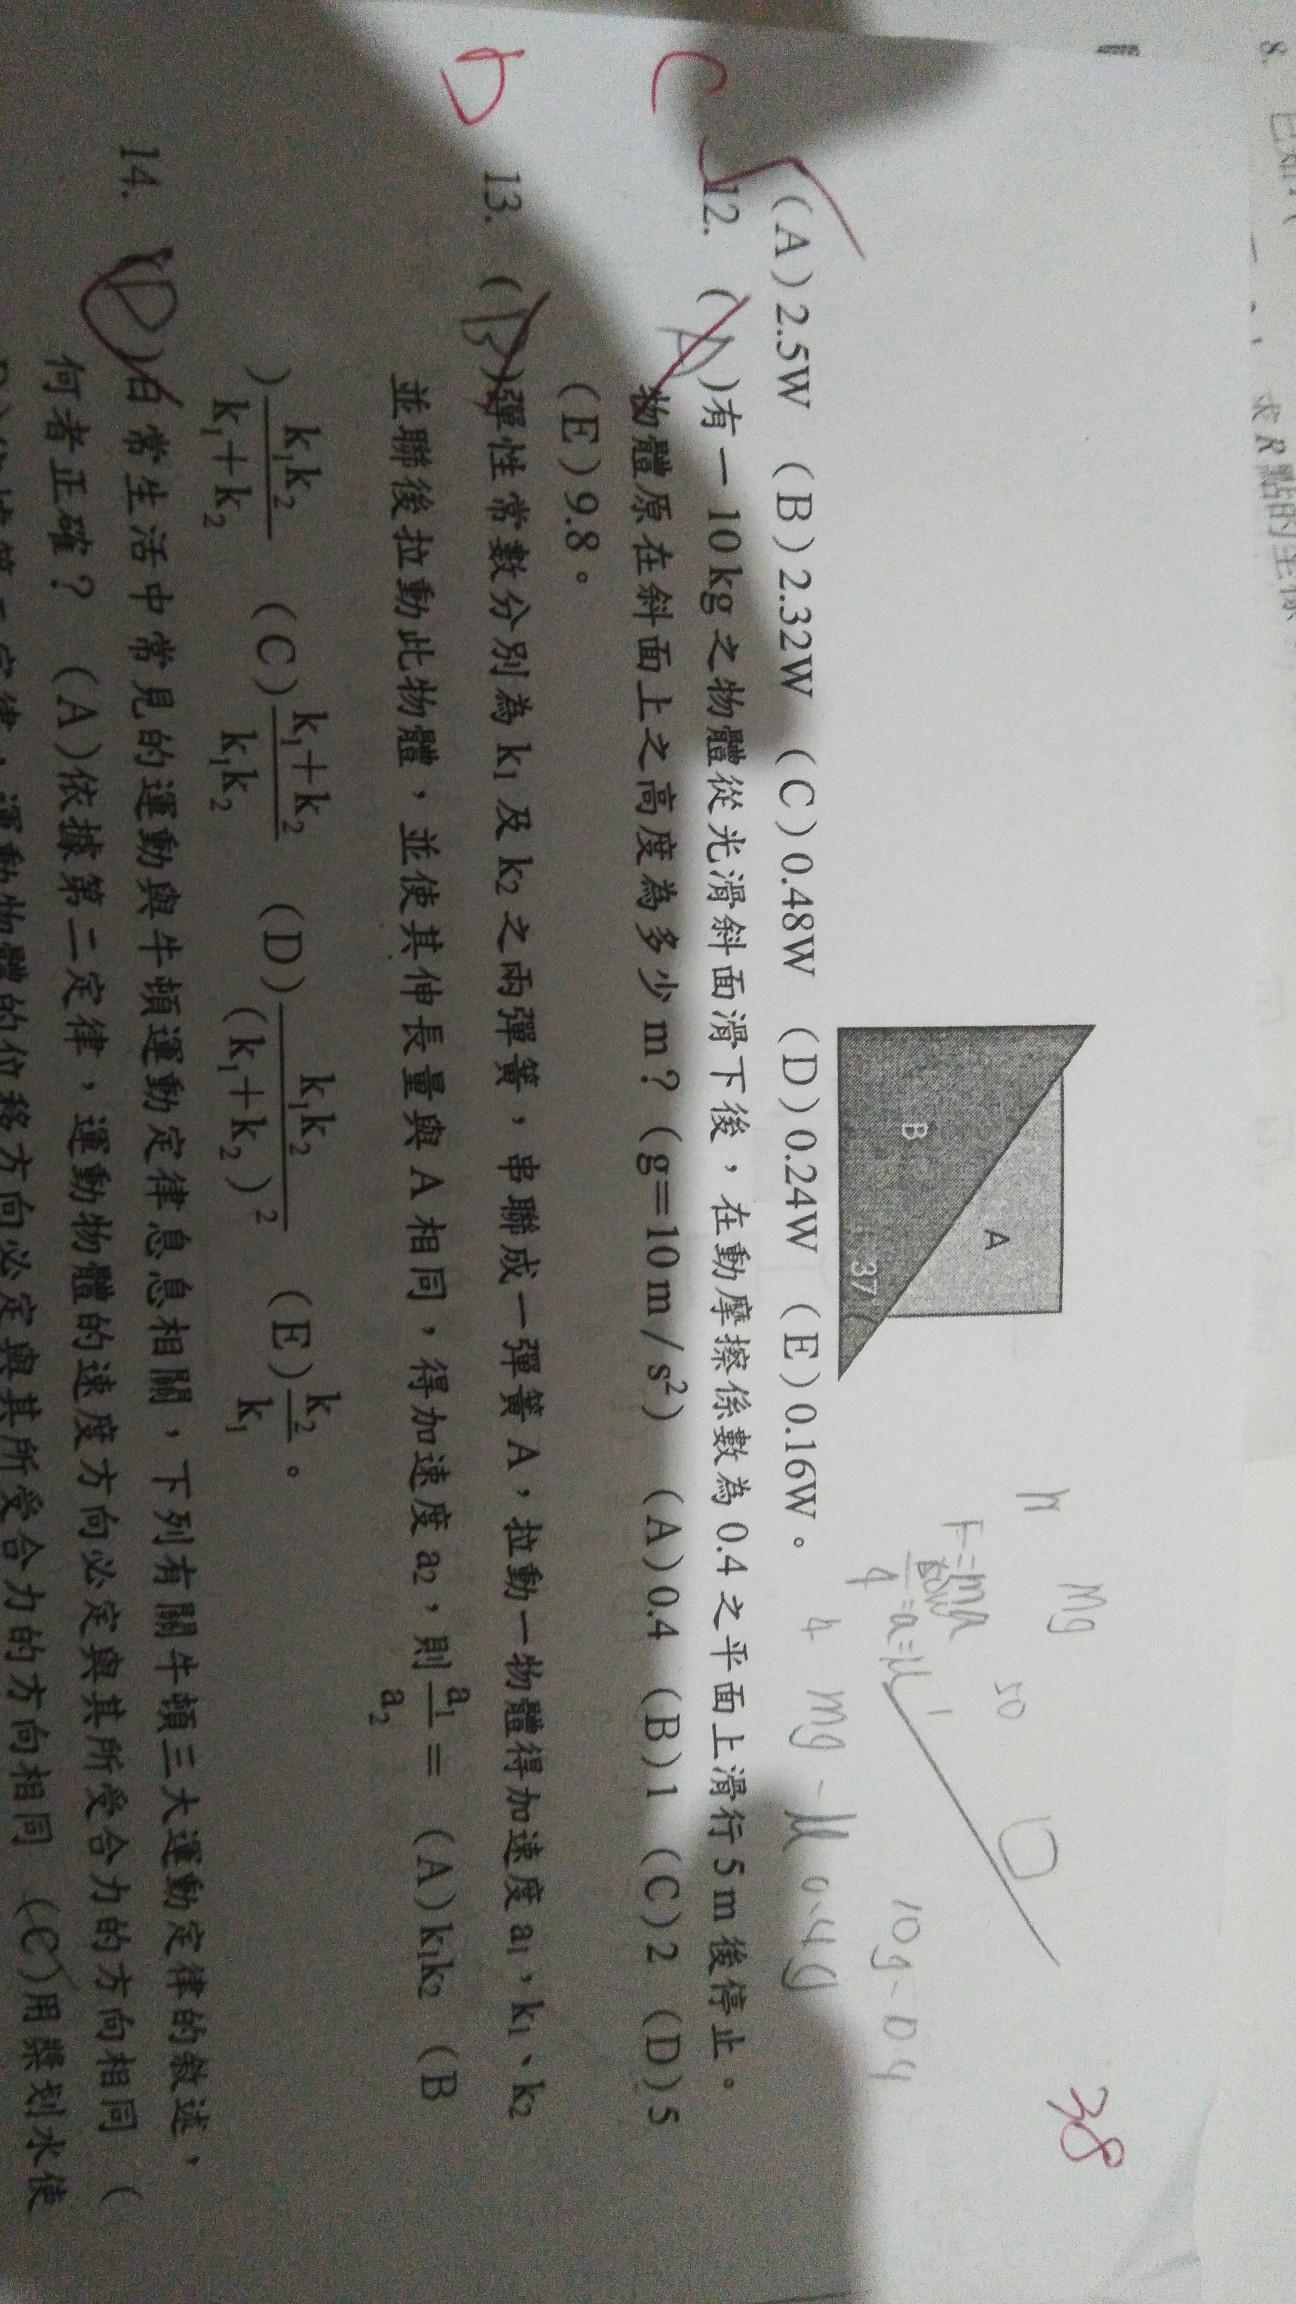 8. 已知
求R點的坐標
38
Mg
h
50
F=ma
=a=μ
4
10g-0.4
4 mg-μ 0.4g
A
B
37
(A)2.5W (B)2.32W (C)0.48W (D)0.24W (E)0.16W。
C 12. (A)有一10kg之物體從光滑斜面滑下後，在動摩擦係數為0.4之平面上滑行5m後停止。
物體原在斜面上之高度為多少m？(g=10m/s²) (A)0.4 (B)1 (C)2 (D)5
(E)9.8。
D 13. (B)彈性常數分別為k₁及k₂之兩彈簧，串聯成一彈簧A，拉動一物體得加速度a₁，k₁、k₂
並聯後拉動此物體，並使其伸長量與A相同，得加速度a₂，則a₁/a₂= (A)k₁k₂ (B
)k₁k₂/k₁+k₂ (C)k₁+k₂/k₁k₂ (D)k₁k₂/(k₁+k₂)² (E)k₂/k₁。
14. (D)日常生活中常見的運動與牛頓運動定律息息相關，下列有關牛頓三大運動定律的敘述，
何者正確？ (A)依據第二定律，運動物體的速度方向必定與其所受合力的方向相同 (
B)依據第二定律，運動物體的位移方向必定與其所受合力的方向相同 (C)用槳划水使